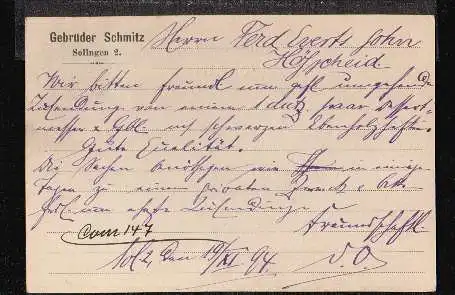 Gebrüder Schmitz
Solingen 2.
Herrn Ferd Everts Sohn
Höhscheid.
Wir bitten freundl um gefl umgehende
Zusendung von einem 1 dutz. paar Dessert
messer & Gbl. mit schwarzen Ebenholzheften.
Gute Qualität.
Die Sachen benöthigen wir in einigen
Tagen zu einem Zweck & bitten
um Zusendung
Freundschaftl.
Com 147
Sol 2, den 19/XI 94 D. O.